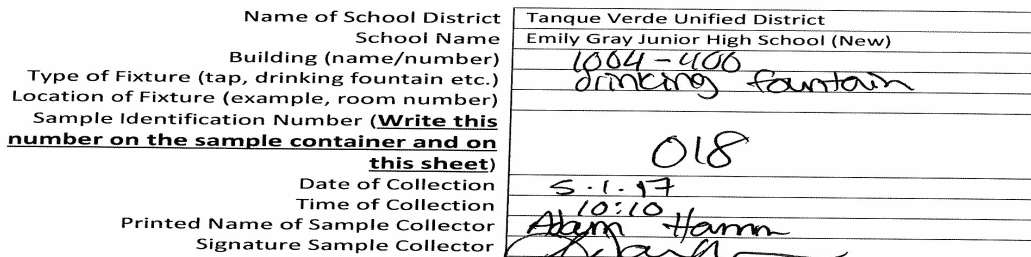 Name of School District Tanque Verde Unified District
School Name Emily Gray Junior High School (New)
Building (name/number) 1004-400
Type of Fixture (tap, drinking fountain etc.) drinking fountain
Location of Fixture (example, room number)
Sample Identification Number (Write this
number on the sample container and on 018
this sheet)
Date of Collection 5.1.17
Time of Collection 10:10
Printed Name of Sample Collector Adam Hamm
Signature Sample Collector